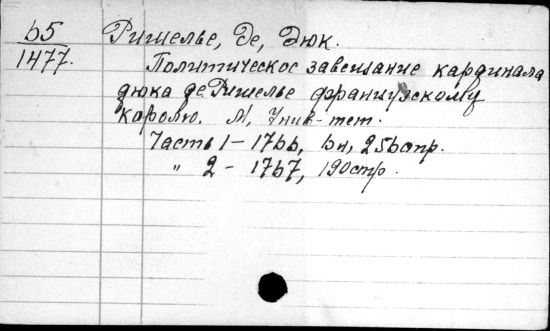 65
1477.
Ришелье, де, Дюк.
Политическое завещание кардинала
дюка де Ришелье французскому
королю. М, Унив-тет.
Часть 1 – 1766, 6н, 256стр.
" 2 – 1767, 190стр.